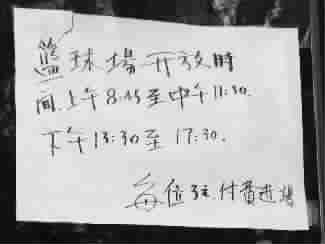 籃球場开放時
间.上午8:45至中午11:30.
下午13:30至17:30.
每位 付費進場